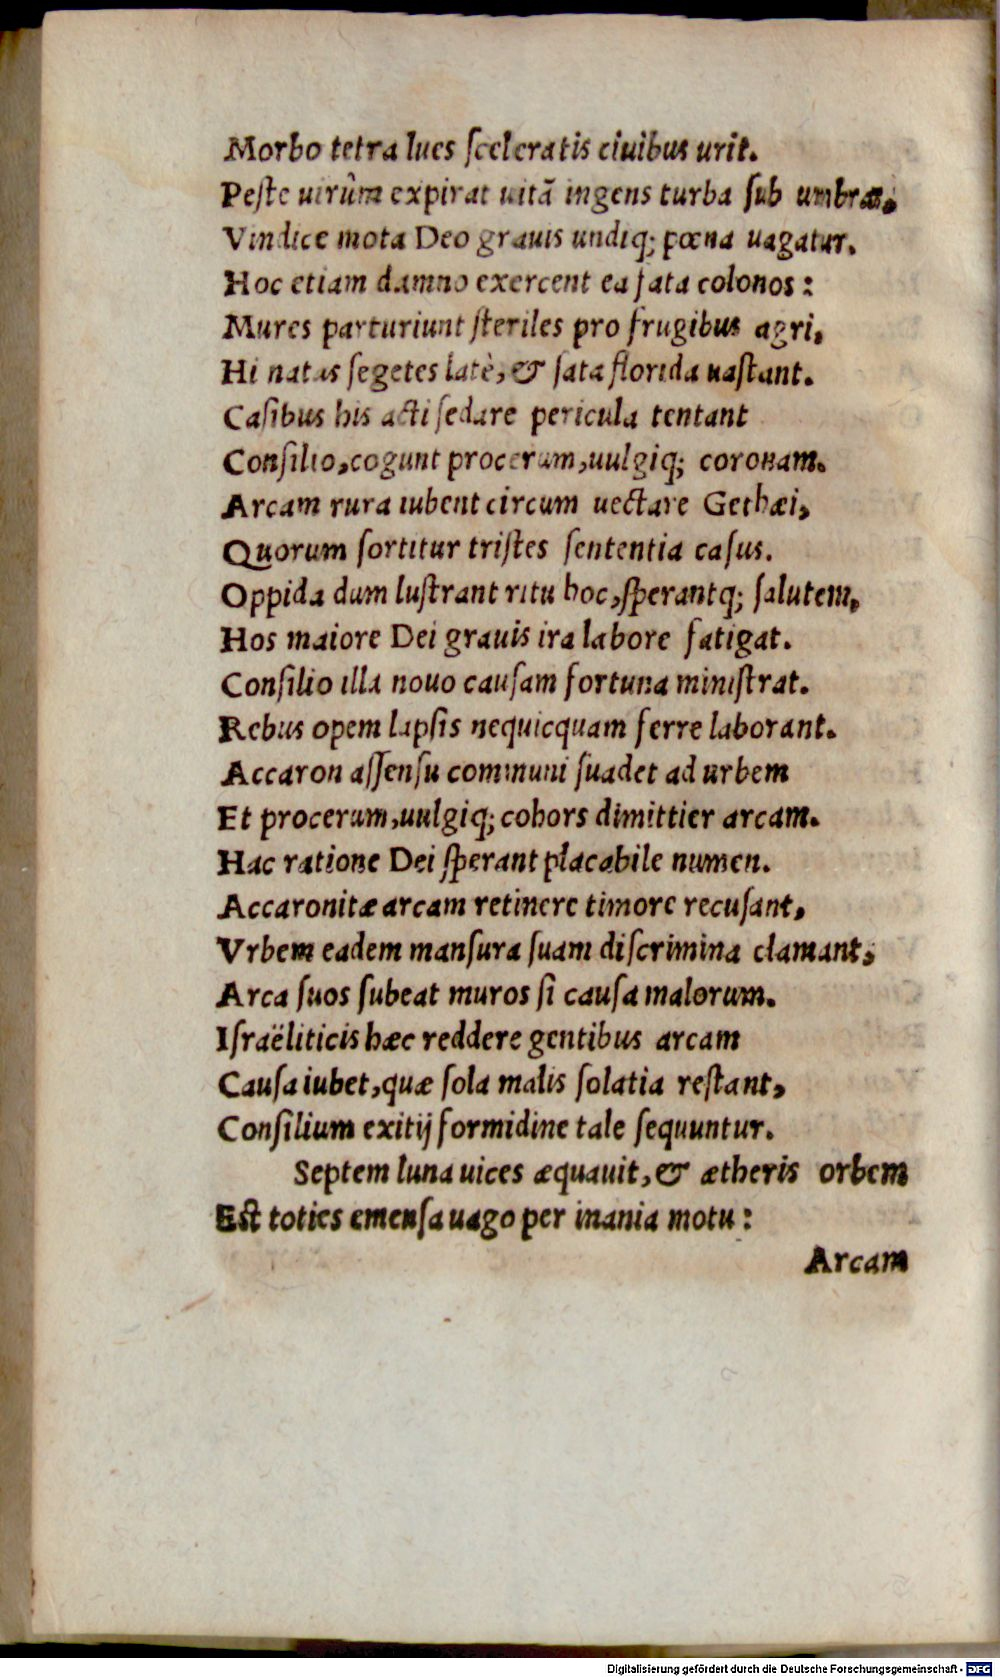 Morbo tetra lues sceleratis ciuibus urit.
Peste uirûm expirat uitã ingens turba sub umbras,
Vindice mota Deo grauis undiq; pœna uagatur.
Hoc etiam damno exercent ea fata colonos:
Mures parturiunt steriles pro frugibus agri,
Hi natas segetes latè, & sata florida uastant.
Casibus his acti sedare pericula tentant
Consilio, cogunt procerum, uulgiq; coronam.
Arcam rura iubent circum uectare Gethæi,
Quorum sortitur tristes sententia casus.
Oppida dum lustrant ritu hoc, sperantq; salutem,
Hos maiore Dei grauis ira labore fatigat.
Consilio illa nouo causam fortuna ministrat.
Rebus opem lapsis nequicquam ferre laborant.
Accaron assensu communi suadet ad urbem
Et procerum, uulgiq; cohors dimittier arcam.
Hac ratione Dei sperant placabile numen.
Accaronitæ arcam retinere timore recusant,
Vrbem eadem mansura suam discrimina clamant,
Arca suos subeat muros si causa malorum.
Israëliticis hæc reddere gentibus arcam
Causa iubet, quæ sola malis solatia restant,
Consilium exitij formidine tale sequuntur.
Septem luna uices æquauit, & ætheris orbem
Est toties emensa uago per inania motu:
Arcam
Digitalisierung gefördert durch die Deutsche Forschungsgemeinschaft - DFG